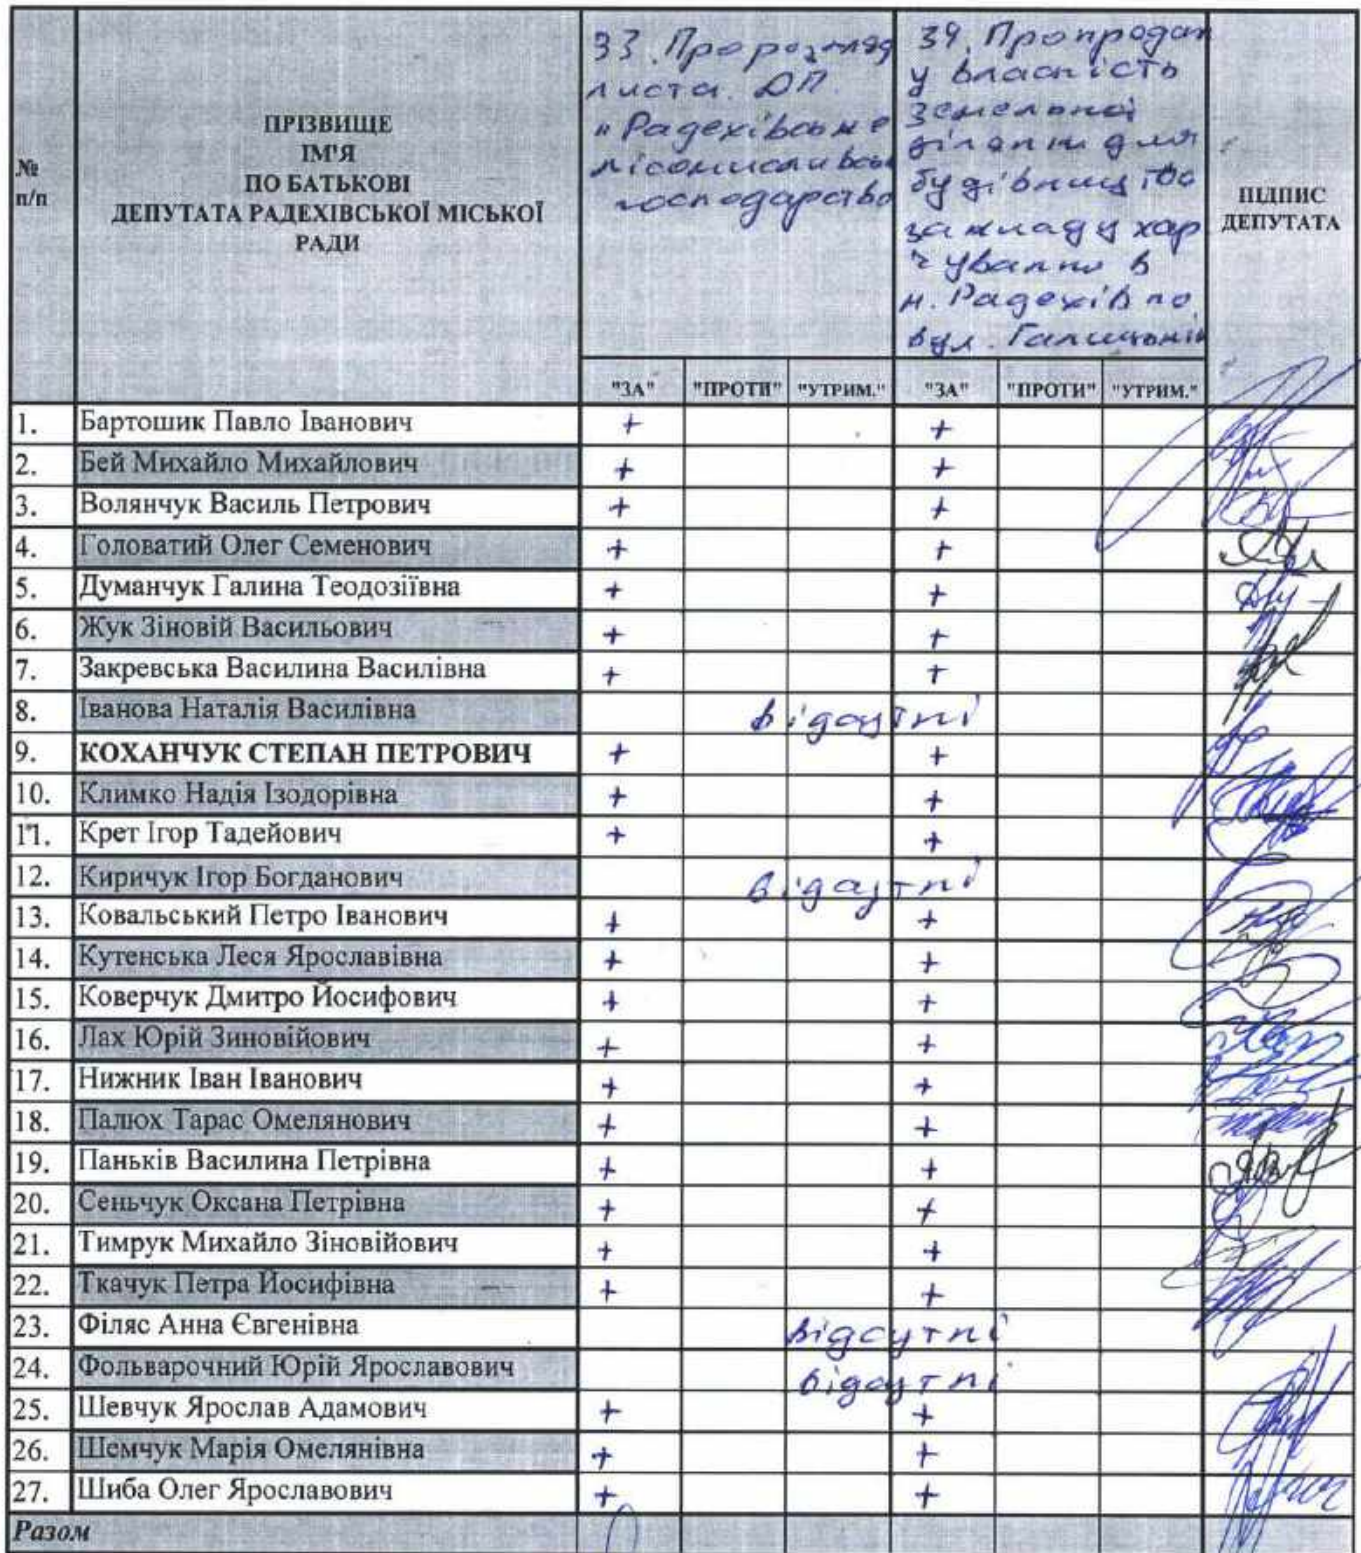 №
п/п
ПРІЗВИЩЕ
ІМ'Я
ПО БАТЬКОВІ
ДЕПУТАТА РАДЕХІВСЬКОЇ МІСЬКОЇ
РАДИ
33. Про розгляд
листа ДП
"Радехівське
господарство
39. Про продаж
у власність
земельної
ділянки для
будівництва
закладу хар
чування в
м. Радехів по
вул.
ПІДПИС
ДЕПУТАТА
"ЗА" "ПРОТИ" "УТРИМ." "ЗА" "ПРОТИ" "УТРИМ."
1. Бартошик Павло Іванович + +
2. Бей Михайло Михайлович + +
3. Волянчук Василь Петрович + +
4. Головатий Олег Семенович + +
5. Думанчук Галина Теодозіївна + +
6. Жук Зіновій Васильович + +
7. Закревська Василина Василівна + +
8. Іванова Наталія Василівна відсутні
9. КОХАНЧУК СТЕПАН ПЕТРОВИЧ + +
10. Климко Надія Ізодорівна + +
11. Крет Ігор Тадейович + +
12. Киричук Ігор Богданович відсутні
13. Ковальський Петро Іванович + +
14. Кутенська Леся Ярославівна + +
15. Коверчук Дмитро Йосифович + +
16. Лах Юрій Зиновійович + +
17. Нижник Іван Іванович + +
18. Палюх Тарас Омелянович + +
19. Паньків Василина Петрівна + +
20. Сеньчук Оксана Петрівна + +
21. Тимрук Михайло Зіновійович + +
22. Ткачук Петра Йосифівна + +
23. Філяс Анна Євгенівна відсутні
24. Фольварочний Юрій Ярославович відсутні
25. Шевчук Ярослав Адамович + +
26. Шемчук Марія Омелянівна + +
27. Шиба Олег Ярославович + +
Разом